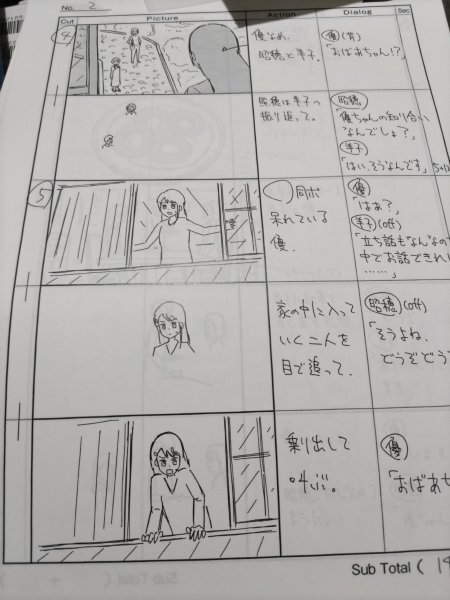 No. 2
Cut
Picture
Action
Dialog
Sec
4
優なめ、
昭穂と幸子。
優
「おばあちゃん!?」
昭穂は幸子へ
振り返って。
昭穂
「優ちゃんの知り合い
なんでしょ?」
幸子
「はい、そうなんです」
5
同ポ
呆れている
優。
優
「はあ?」
幸子(off)
「立ち話もなんなの
中でお話できれ
……」
家の中に入って
いく二人を
目で追って。
昭穂(off)
「そうよね、
どうぞどう
乗り出して
叫ぶ。
優
「おばあち
Sub Total (